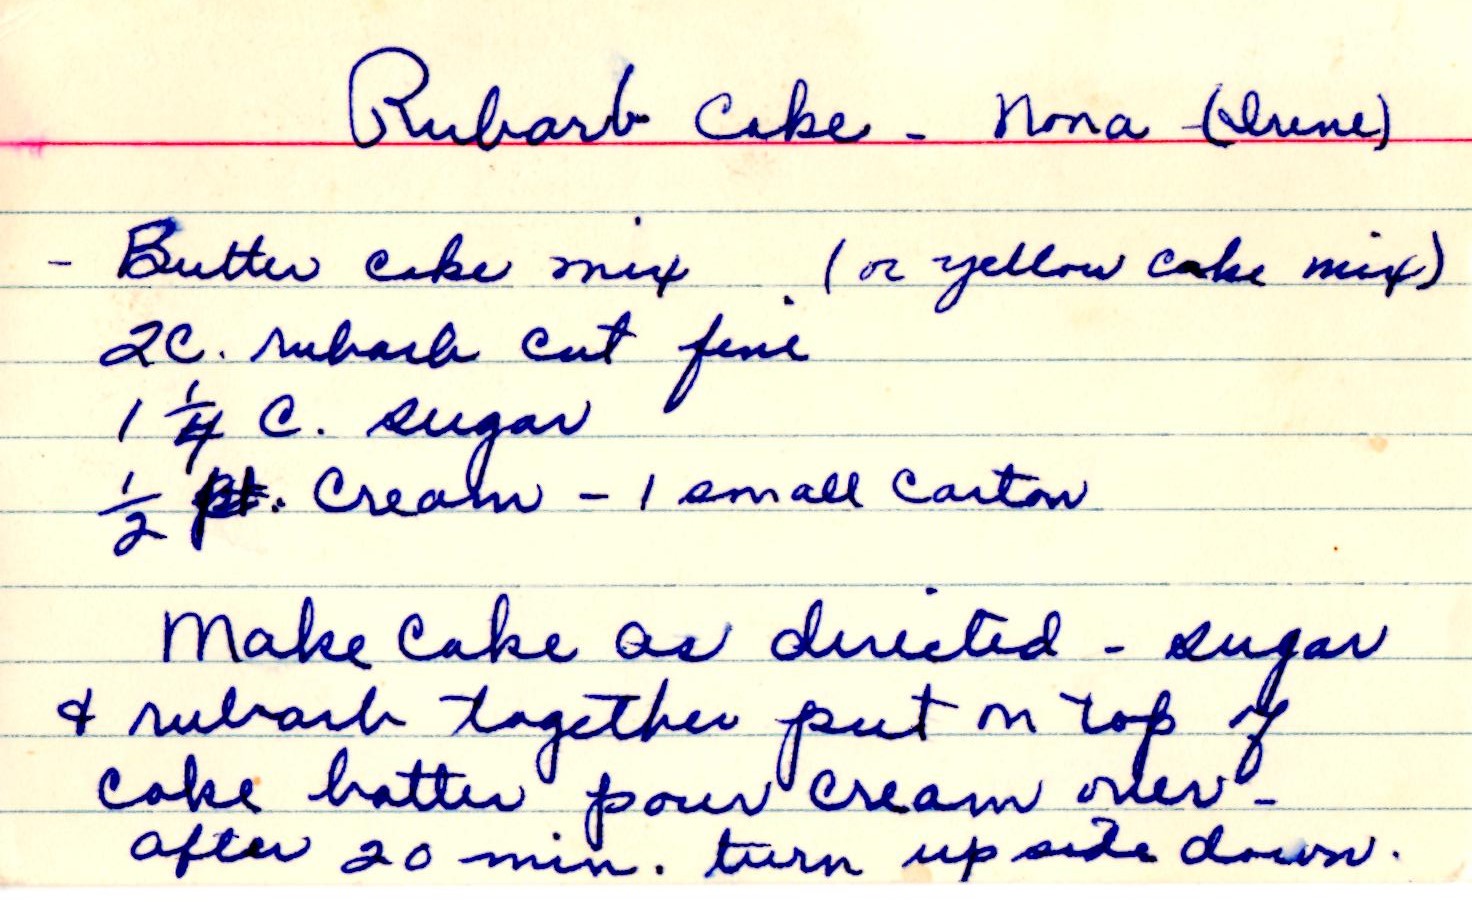 Rubarb Cake - Nona - (Irene)
- Butter cake mix (or yellow cake mix)
2C. rubarb cut fine
1 1/4 C. sugar
1/2 pt. Cream - 1 small carton
Make cake as directed - sugar
& rubarb together put on top of
cake batter pour cream over -
after 20 min. turn upside down.